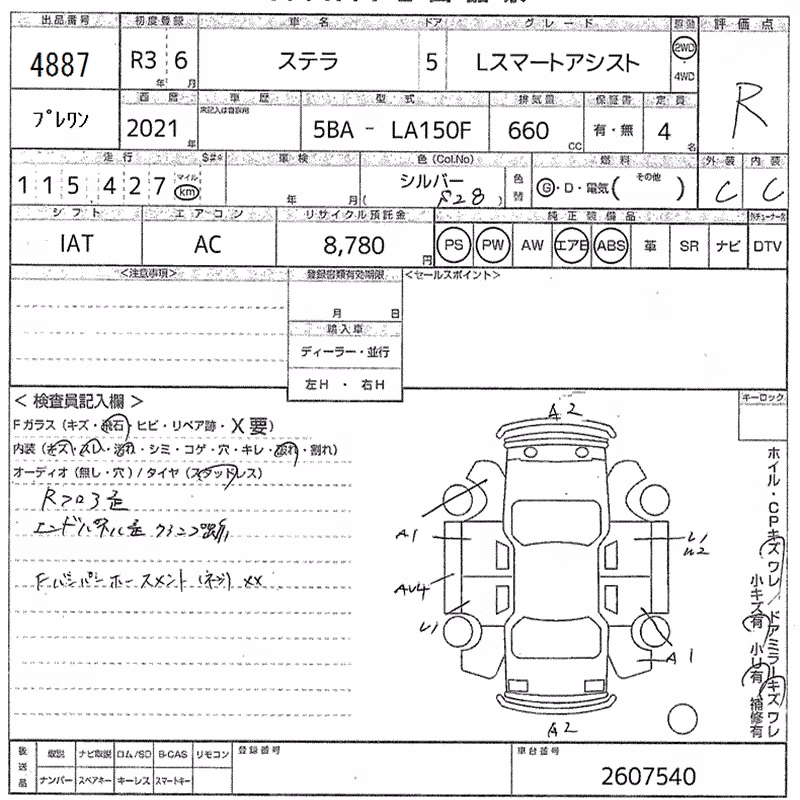 出品番号 初度登録 車名 ドア グレード 駆動 評価点
4887 R3 6 ステラ 5 Lスマートアシスト 2WD・4WD R
年 月
プレワン 西暦 車歴 型式 排気量 保証書 定員
未記入は自家用
2021年 5BA - LA150F 660cc 有・無 4名
走行 S#* 車検 色(Col.No) 燃料 外装 内装
115,427 マイル km 年 月 シルバー ( S28 ) 色替 G・D・電気( その他 ) C C
シフト エアコン リサイクル預託金 純正装備品
IAT AC 8,780円 PS PW AW エアB ABS 革 SR ナビ DTV
<注意事項> 登録書類有効期限 <セールスポイント>
月 日
輸入車
ディーラー・並行
左H ・ 右H
<検査員記入欄> キーロック
Fガラス(キズ・飛石・ヒビ・リペア跡・X要)
内装(キズ・スレ・汚れ・シミ・コゲ・穴・キレ・破れ・割れ)
オーディオ(無し・穴)/タイヤ(スタッドレス)
Rフロア歪
エンドパネル歪 クランプ跡
Fバンパーホースメント(ネジ) XX
A2
A1
U1
U2
AU4
U1
A1
A2
ホイル・CPキズワレ/ドアミラーキズワレ
小キズ有 小U有 補修有
後送品 取説 ナビ取説 ロム/SD B-CAS リモコン 登録番号 車台番号
ナンバー スペアキー キーレス スマートキー 2607540